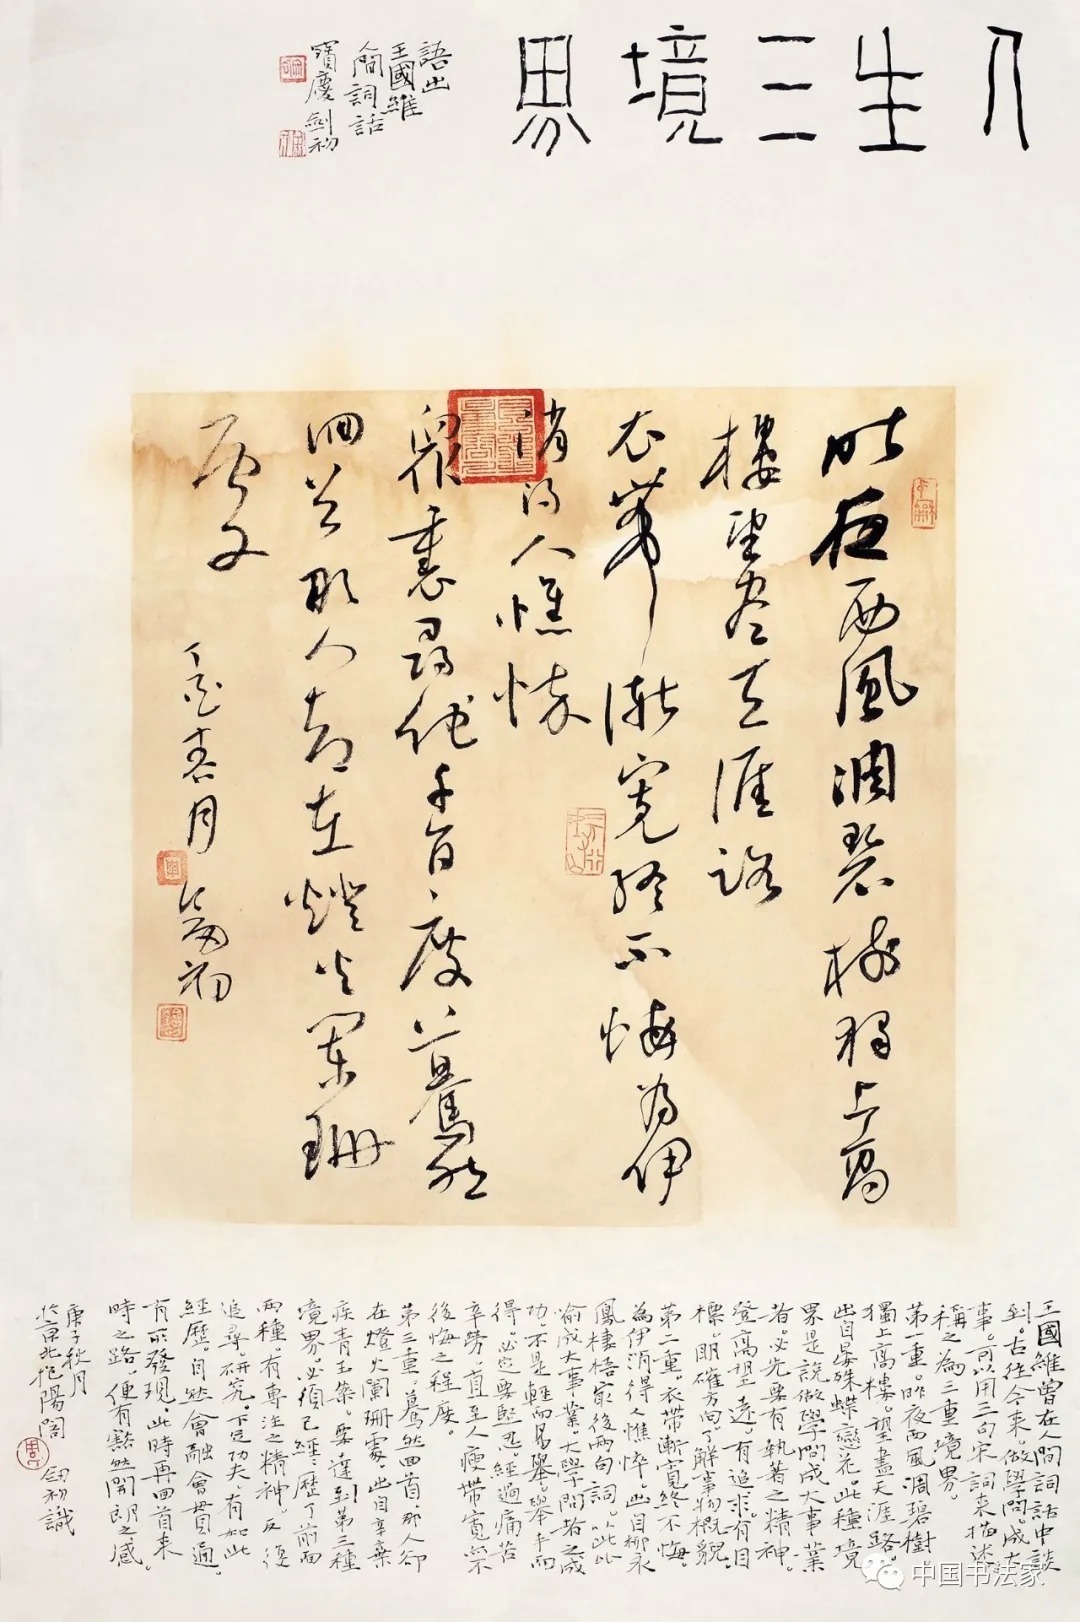 人生三境界
語出
王國維
人間詞話
寶慶劍初
昨夜西風凋碧樹獨上高
樓望盡天涯路
衣帶漸寬終不悔為伊
消得人憔悴
眾裏尋他千百度驀然
回首那人卻在燈火闌珊
處
丁酉春月
劍初
王國維曾在人間詞話中談
到。古往今來。做學問。成大
事。可以用三句宋詞來描述
稱之為三重境界。
第一重。昨夜西風凋碧樹
獨上高樓。望盡天涯路。
出自晏殊蝶戀花。此種境
界是說做學問成大事業
者。必先要有執著之精神。
登高望遠。有追求。有目
標。明確方向。了解事物概貌。
第二重。衣帶漸寬終不悔
為伊消得人憔悴。出自柳永
鳳棲梧最後兩句詞。以此比
喻成大事業。大學問者之成
功。不是輕而易舉。舉手而
得。必定要堅忍。經過痛苦
辛勞。直至人瘦帶寬不
後悔之程度。
第三重。驀然回首。那人卻
在燈火闌珊處。出自辛棄
疾青玉案。要達到第三種
境界。必須已經歷了前面
兩種。有專注之精神。反復
追尋。研究。下足功夫。有如此
經歷。自然會融會貫通。
有所發現。此時再回首來
時之路。便有豁然開朗之感。
庚子秋月
於京北 陽閣 劍初識
中国书法家